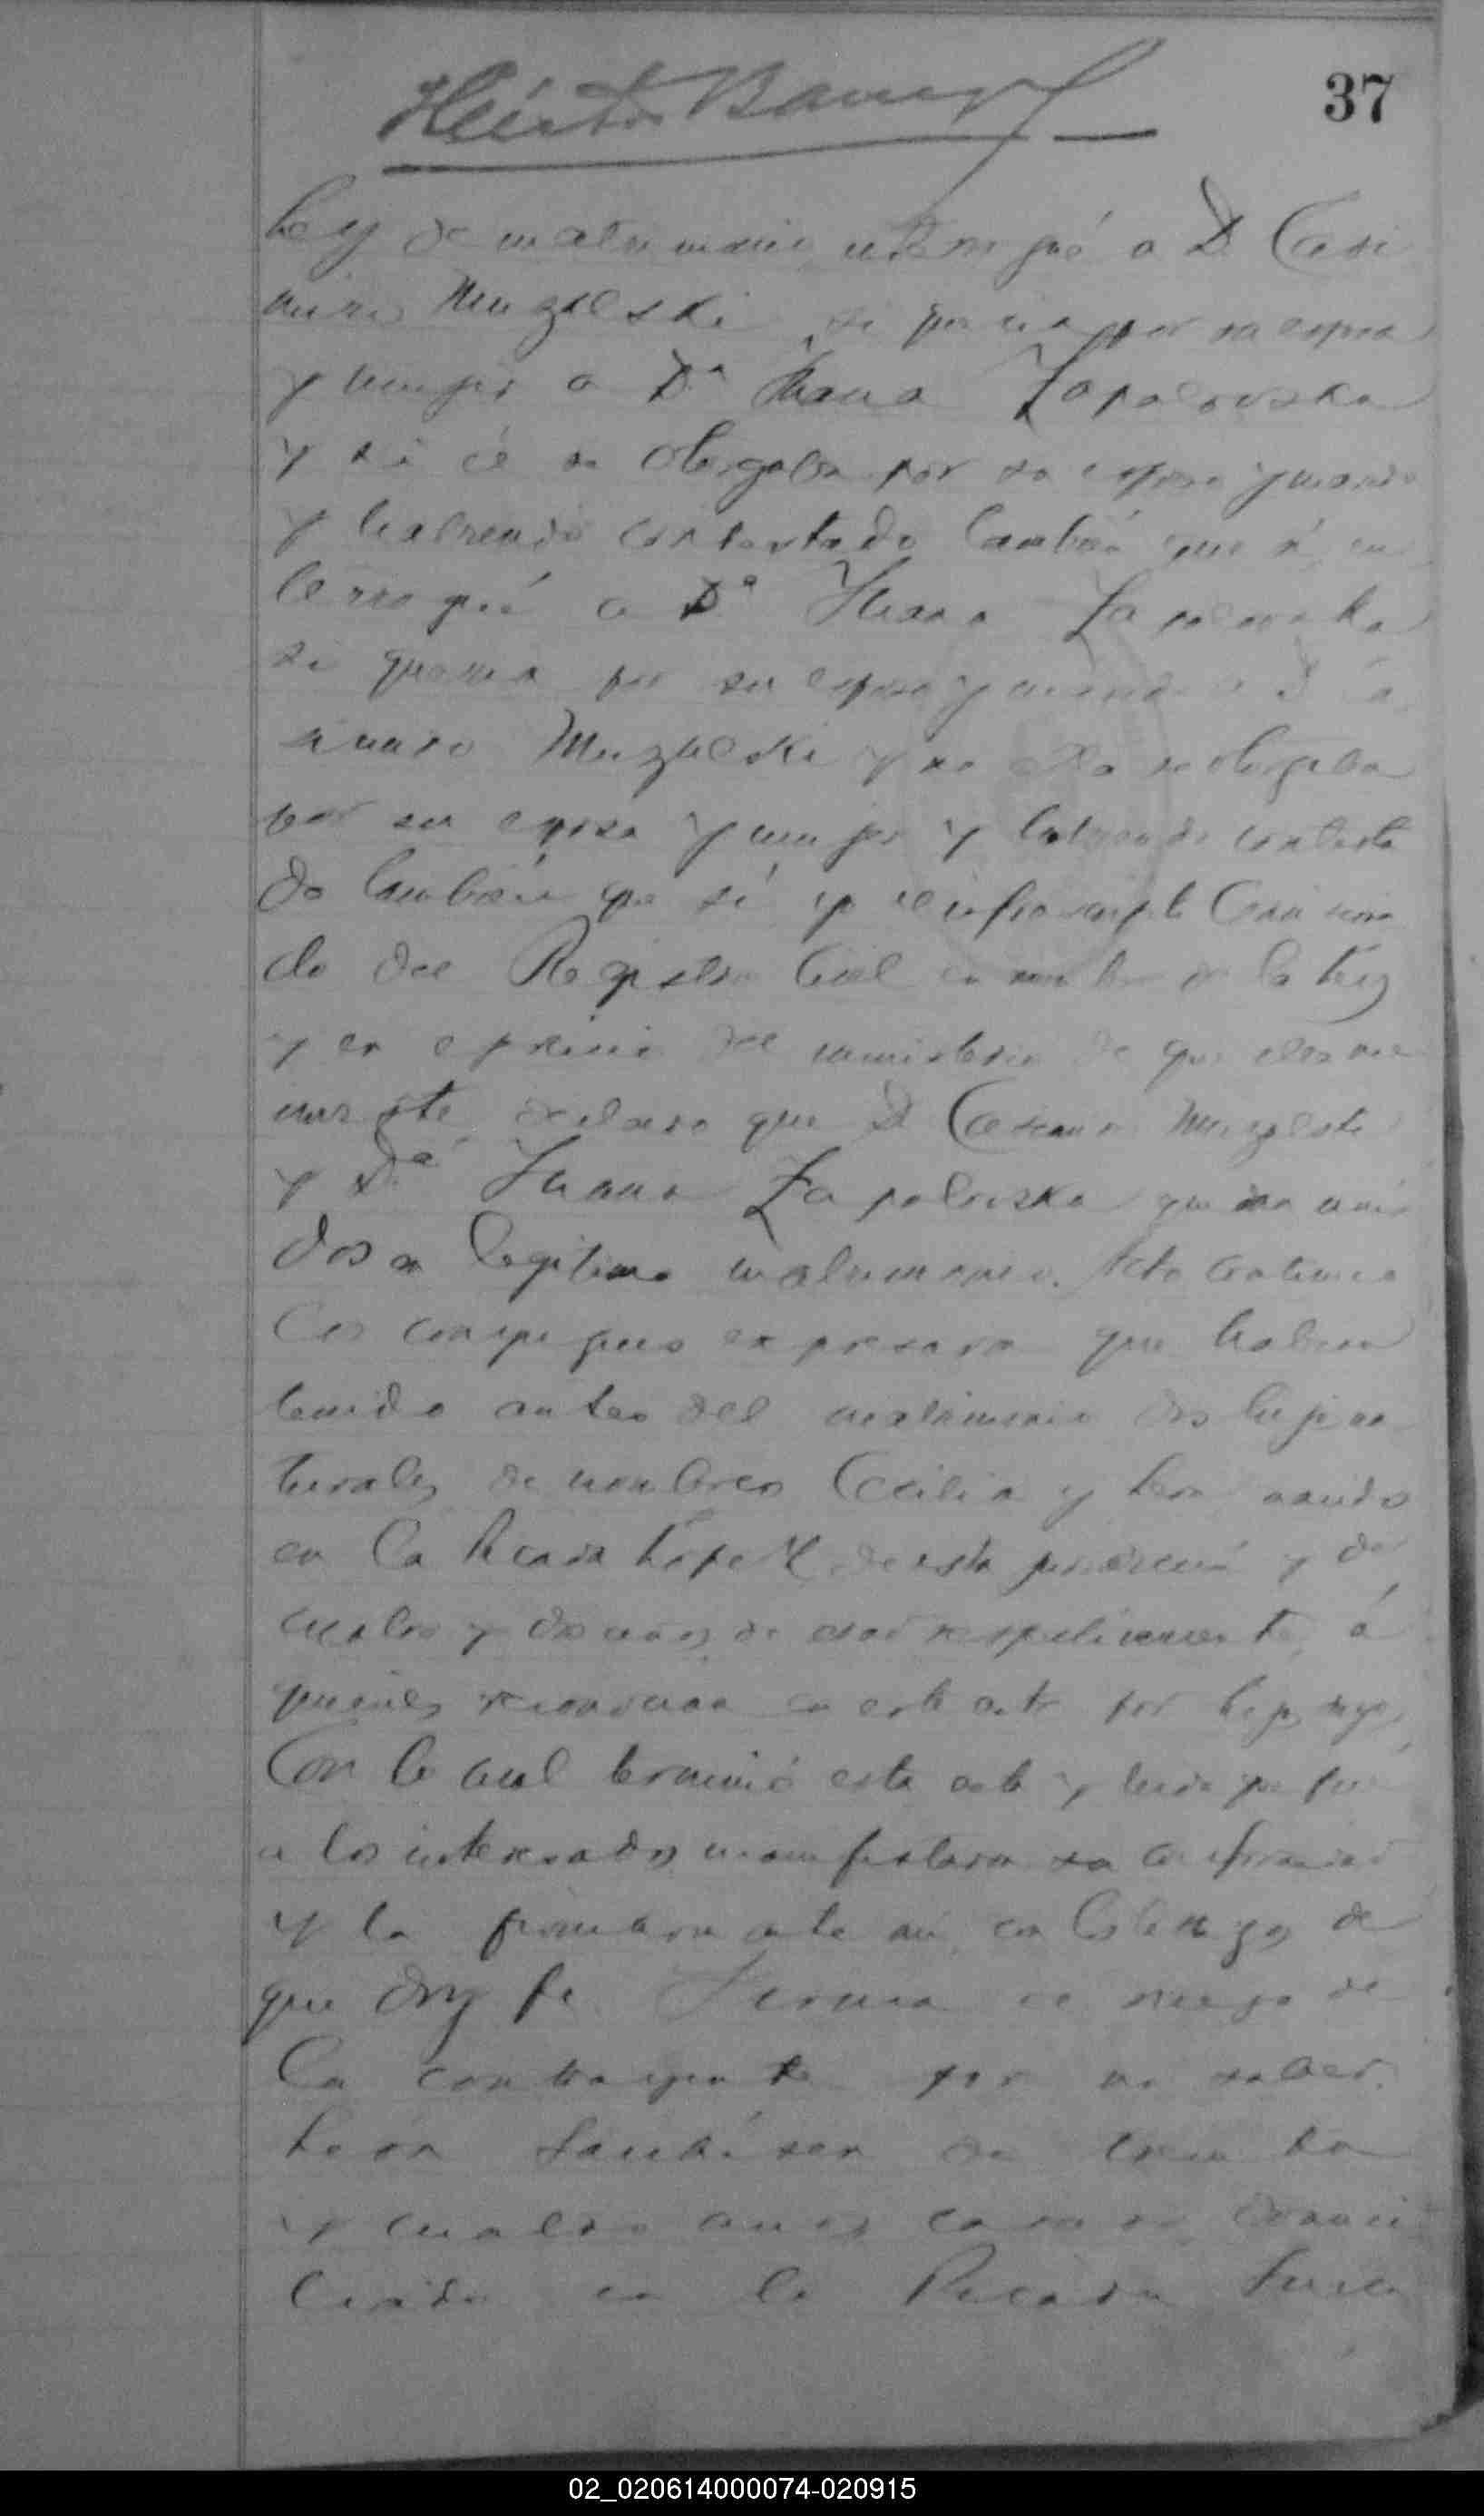 37
Ley de matrimonio interrogué a D. Casi
miro Muzalski si queria por su esposa
y mujer a Da Juana Zapalowska
y si él se otorgaba por su esposo y marido
y habiendo contestado también que sí, in
terrogué a Da Juana Zapalowska
si queria por su esposo y marido a D Ca
simiro Muzalski y si ella se otorgaba
por su esposa y mujer y habiendo contesta
do también que sí yo el infrascripto Encarga
do del Registro Civil en nombre de la Ley
y en ejercicio del ministerio de que
declaro que D Casimiro Muzalski
y Da Juana Zapalowska quedan uni
dos en legitimo matrimonio. Acto continuo
los conyuges expresaron que habian
tenido antes del matrimonio dos hijos na
turales de nombres Cecilia y nacidos
en la Picada de esta jurisdicción y de
cuatro y dos años de edad respectivamente, á
quienes reconocian en este acto por hijos suyos,
Con lo cual terminó esta acta y leida que fué
a los interesados manifestaron su conformidad
y la firmaron ante mí, con los testigos de
que doy fé. Firma a ruego de
la contrayente por no saber
de treinta
y cuatro años casado, domici
liado en la Picada
02_020614000074-020915